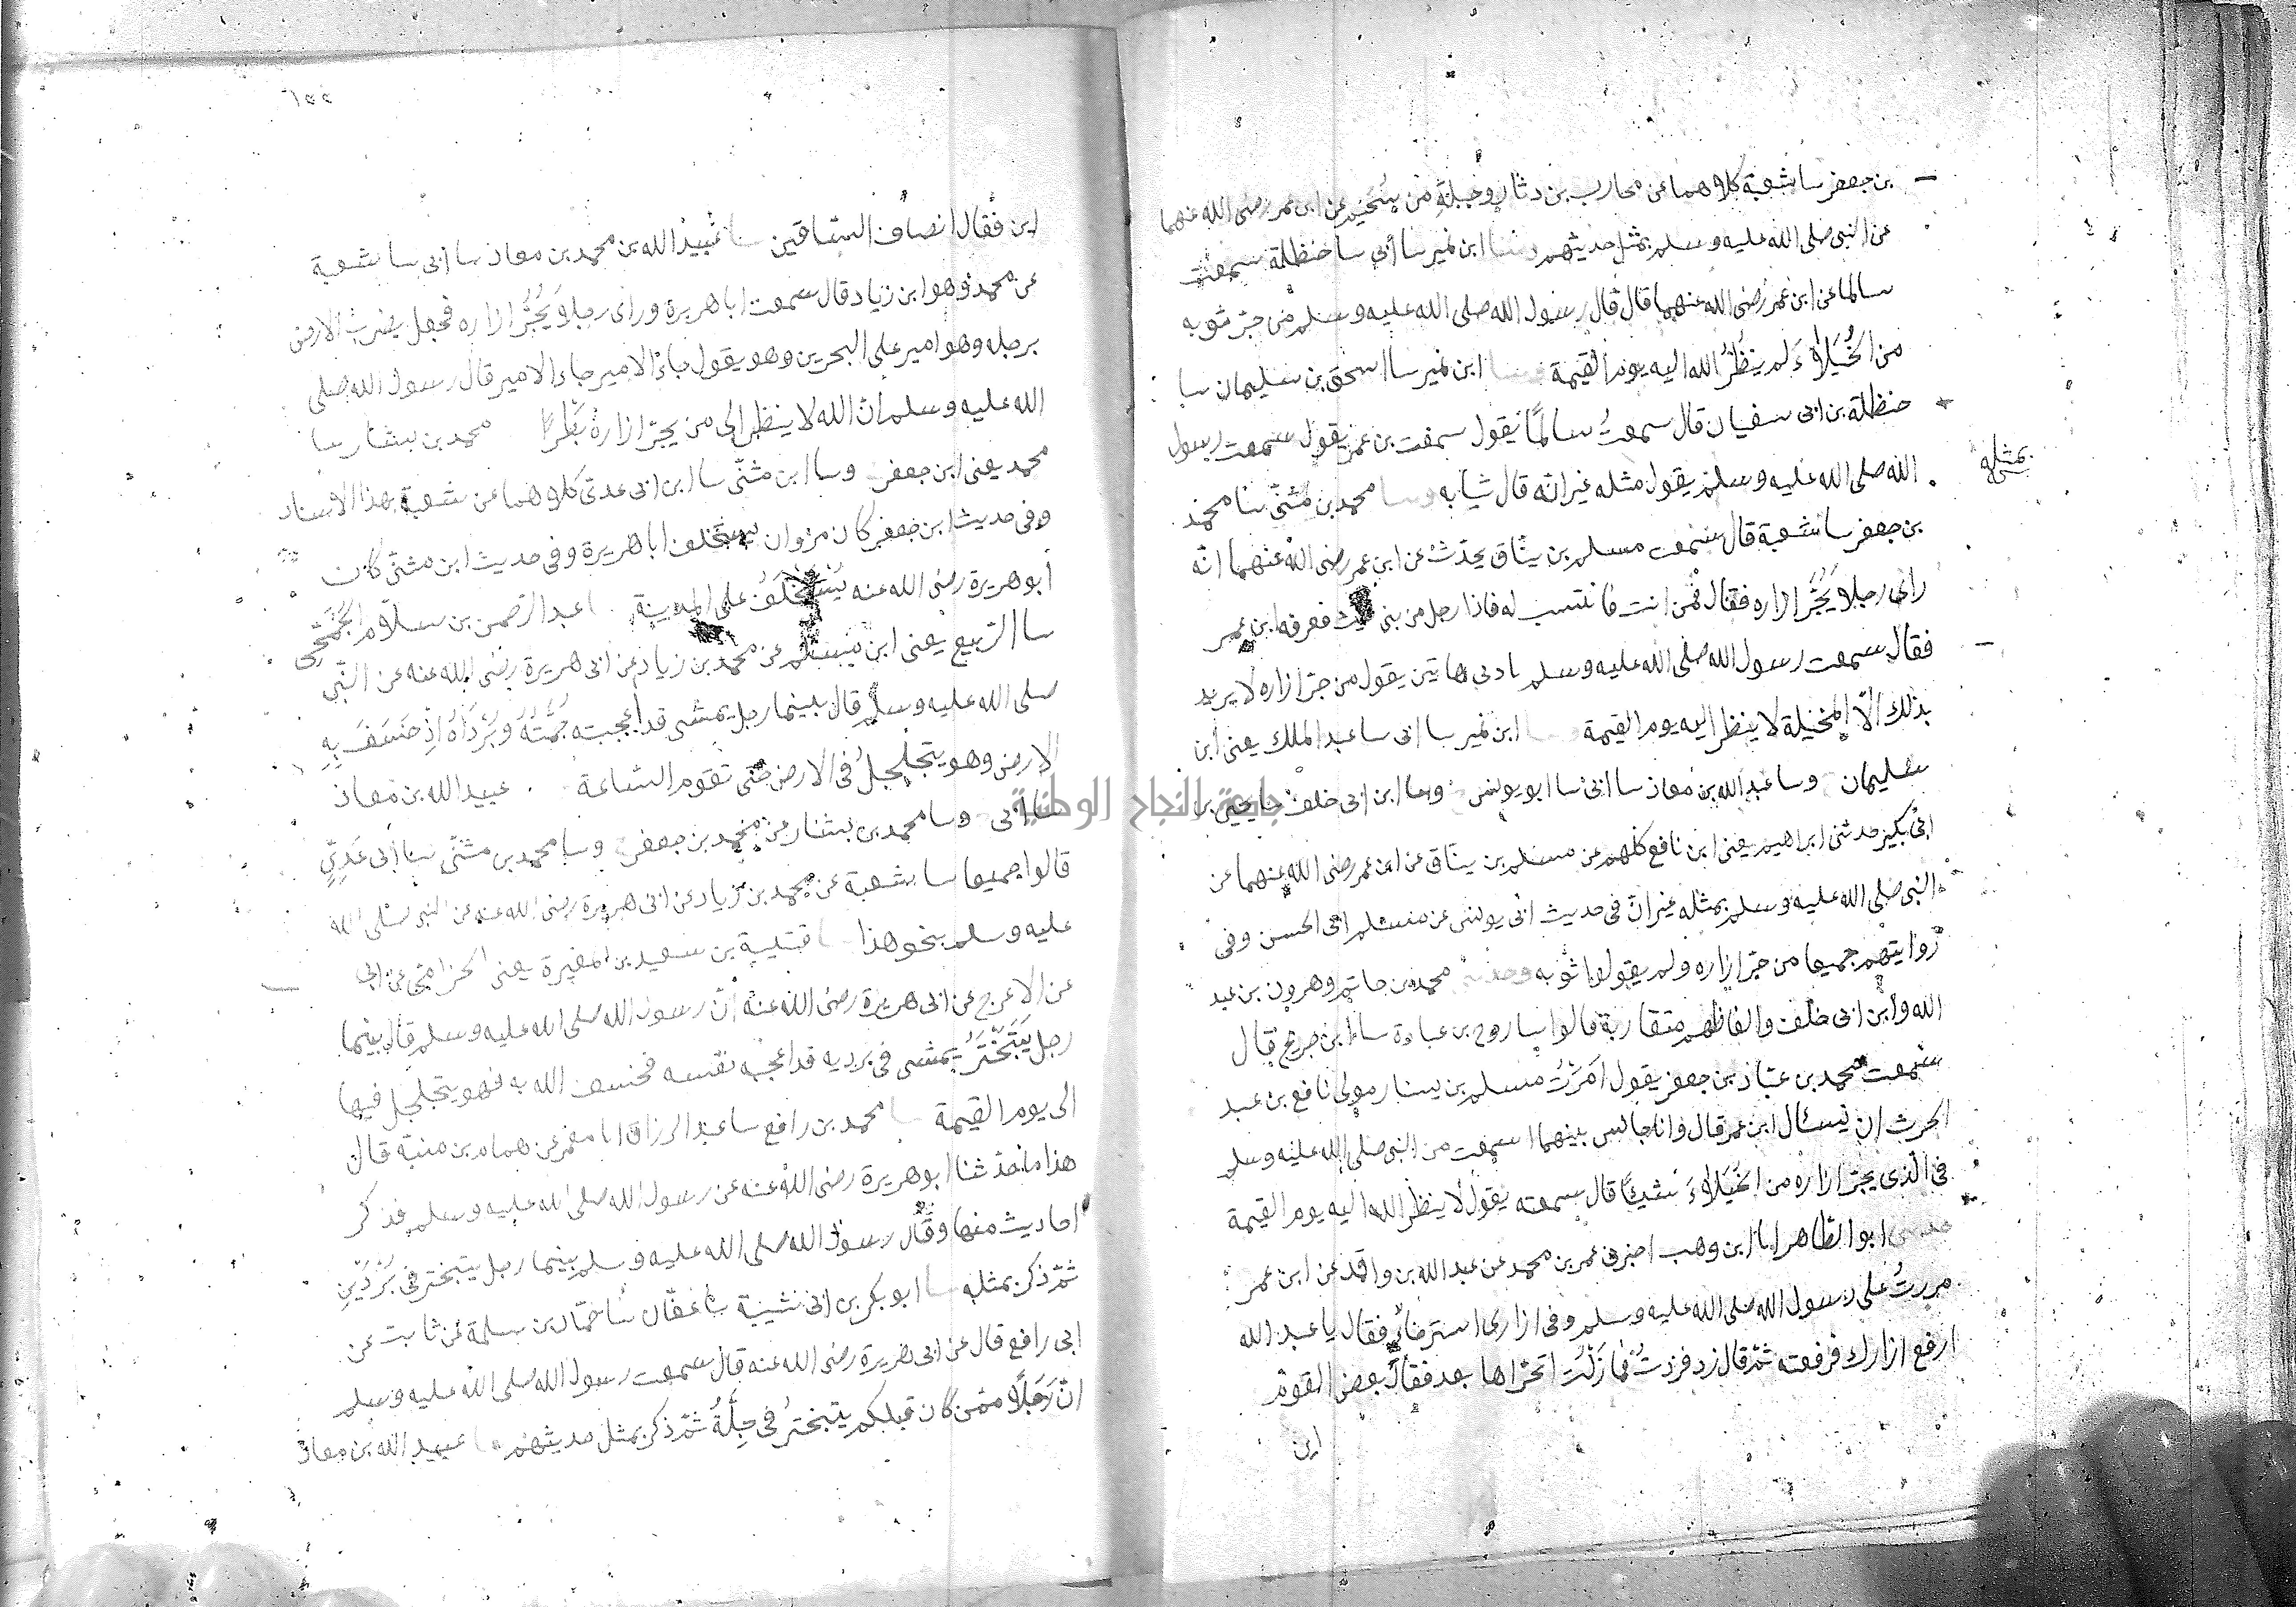 بن جعفر سا شعبة كلاهما عن محارب بن دثار وجبلة بن سحيم عن ابن عمر رضى الله عنهما
عن النبى صلى الله عليه وسلم بمثل حديثهم ابن نمير سا أبى سا حنظلة سمعت
سالما عن ابن عمر رضى الله عنهما قال قال رسول الله صلى الله عليه وسلم من جرّ ثوبه
من الخُيَلاءَ لم ينظُرُ الله اليه يوم القيمة ابن نمير سا اسحق بن سليمان سا
حنظلة بن ابى سفيان قال سمعتُ سالمًا يقول سمعت بن عمر يقول سمعت رسول
الله صلى الله عليه وسلم يقول مثله غير انّه قال ثيابه وسا محمد بن مثنّى سا محمد
بمثله
بن جعفر سا شعبة قال سمعت مسلم بن يناق يحدّث عن ابن عمر رضى الله عنهما انّه
راى رجلا يَجُرُّ ازاره فقال ممن انت فانتسب له فاذا رجل من بنى ليث فعرفه ابن عمر
فقال سمعت رسول الله صلى الله عليه وسلم بادنى هاتين يقول من جرّ ازاره لا يريد
بذلك الّا المخيلة لا ينظر اليه يوم القيمة وسا ابن نمير سا ابى سا عبد الملك يعنى ابن
سليمان وسا عبد الله بن معاذ سا ابى سا ابو يونس وسا ابن ابى خلف سا يحيى بن
ابى بكير حدثنى ابراهيم يعنى ابن نافع كلهم عن مسلم بن يناق عن ابن عمر رضى الله عنهما عن
النبى صلى الله عليه وسلم بمثله غير انّ فى حديث ابى يونس عن مسلم ابى الحسن وفى
روايتهم جميعا من جرّ ازاره ولم يقولوا ثوبه وحدثنى محمد بن حاتم وهرون بن عبد
الله وابن ابى خلف والفاظهم متقاربة قالوا سا روح بن عبادة سا ابن جريج قال
سمعت محمد بن عبّاد بن جعفر يقول امَرْتُ مسلم بن يسار مولى نافع بن عبد
الحرث ان يسئال ابن عمر قال وانا جالس بينهما اسمعت من النبى صلى الله عليه وسلم
فى الّذى يجرّ ازاره من الخُيَلاءَ شيئًا قال سمعته يقول لا ينظر الله اليه يوم القيمة
حدثنى ابو الطاهر انا ابن وهب اخبرنى عمر بن محمد عن عبد الله بن واقد عن ابن عمر
مررتُ على رسول الله صلى الله عليه وسلم وفى ازارى استرخاء فقال يا عبد الله
ارفع ازارك فرفعته ثمّ قال زد فزدتُ فما زلْتُ اتحرّاها بعد فقال بعض القوم
اين
١٥٥
اين فقال انصاف السّاقين سا عُبيد الله بن محمد بن معاذ سا ابى سا شعبة
عن محمد وهو ابن زياد قال سمعت ابا هريرة وراى رجلا يَجُرُّ ازاره فجعل يضرب الارض
برجله وهو امير على البحرين وهو يقول جاء الامير جاء الامير قال رسول الله صلى
الله عليه وسلم انّ الله لا ينظر الى من يجرّ ازاره بَطَرًا محمد بن بشار سا
محمد يعنى ابن جعفر وسا ابن مثنّى سا ابن ابى عدىّ كلاهما عن شعبة بهذا الاسناد
وفى حديث ابن جعفر كان مروان يستخلف ابا هريرة وفى حديث ابن مثنّى كان
أبو هريرة رضى الله عنه يُسْتَخْلَفُ على المدينة عبد الرحمن بن سلّام الجُمَحِى
سا الرّبيع يعنى ابن مسلم عن محمد بن زياد عن ابى هريرة رضى الله عنه عن النّبى
صلى الله عليه وسلم قال بينما رجل يمشى قد أعجبته جُمَّتُهُ وبُرْدَاهُ اذ خَسَفَ بِهِ
الارض وهو يتجلجلُ فى الارض حتى تقوم السّاعة عبيد الله بن معاذ
سا ابى وسا محمد بن بشار عن محمد بن جعفر وسا محمد بن مثنّى سا أبى عَدِىّ
قالوا جميعا سا شعبة عن محمد بن زياد عن ابى هريرة رضى الله عنه عن النبى صلى الله
عليه وسلم بنحو هذا قتيبة بن سعيد بن المغيرة يعنى الحزامى عن ابى
عن الاعرج عن ابى هريرة رضى الله عنه أنّ رسول الله صلى الله عليه وسلم قال بينما
رجل يَتَبَخْتَرُ يمشى فى برديه قد اعجبه نفسه فخسف الله به فهو يتجلجل فيها
الى يوم القيمة محمد بن رافع سا عبد الرزاق انا معمر عن همام بن منبّه قال
هذا ما حدّثنا ابو هريرة رضى الله عنه عن رسول الله صلى الله عليه وسلم فذكر
احاديث منها وقال رسول الله صلى الله عليه وسلم بينما رجل يتبختر فى بُرْدَيْنِ
ثمّ ذكر بمثله ابو بكر بن ابى شيبة سا عفّان سا حمّاد بن سلمة عن ثابت عن
ابى رافع قال عن ابى هريرة رضى الله عنه قال سمعت رسول الله صلى الله عليه وسلم
انّ رَجُلًا ممّن كان قبلكم يتبختر فى حُلَّةٍ ثمّ ذكر بمثل حديثهم عبيد الله بن معاذ
جامعة النجاح الوطنية